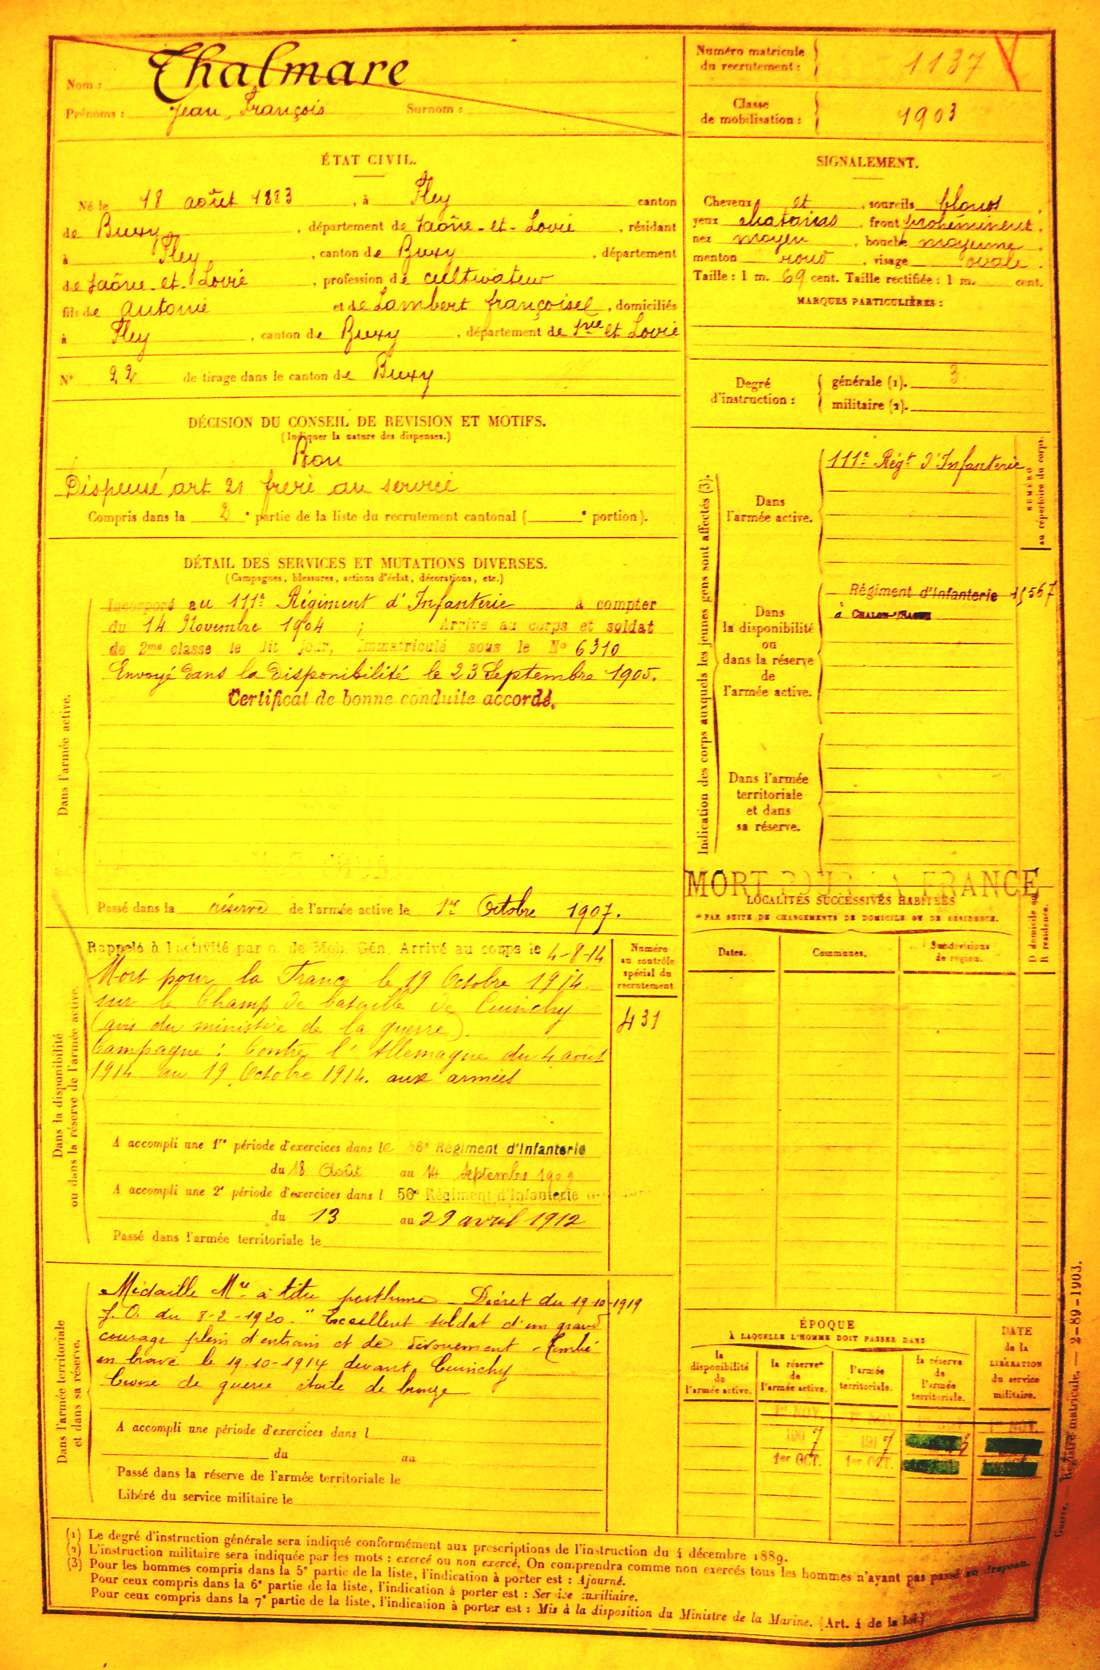 Nom : Thalmare
Prénoms : Jean, François Surnom :
Numéro matricule du recrutement : 1137
Classe de mobilisation : 1903
ÉTAT CIVIL.
Né le 18 août 1883, à Fley canton
de Buxy, département de Saône-et-Loire, résidant
à Fley, canton de Buxy, département
de Saône-et-Loire, profession de cultivateur
fils de Antoine et de Lambert françoise, domiciliés
à Fley, canton de Buxy, département de Sne et Loire
N° 22 de tirage dans le canton de Buxy
SIGNALEMENT.
Cheveux et sourcils blonds,
yeux chatains, front proéminent,
nez moyen, bouche moyenne,
menton rond, visage ovale.
Taille : 1 m. 69 cent. Taille rectifiée : 1 m. cent.
MARQUES PARTICULIÈRES :
Degré d'instruction : générale (1). 3
militaire (2).
DÉCISION DU CONSEIL DE REVISION ET MOTIFS.
(Indiquer la nature des dispenses.)
Bon
Dispensé art 21 frère au service
Compris dans la 2e partie de la liste du recrutement cantonal ( e portion).
DÉTAIL DES SERVICES ET MUTATIONS DIVERSES.
(Campagnes, blessures, actions d'éclat, décorations, etc.)
Dans l'armée active.
Incorporé au 111e Régiment d'Infanterie à compter
du 14 Novembre 1904 ; Arrivé au corps et soldat
de 2me classe le dit jour, immatriculé sous le No 6310
Envoyé dans la disponibilité le 23 Septembre 1905.
Certificat de bonne conduite accordé.
Passé dans la réserve de l'armée active le 1er Octobre 1907.
Indication des corps auxquels les jeunes gens sont affectés (3).
Dans l'armée active.
111e Régt d'Infanterie
NUMÉRO au répertoire du corps.
Dans la disponibilité ou dans la réserve de l'armée active.
Régiment d'Infanterie
à CHALON-S-SAONE
Dans l'armée territoriale et dans sa réserve.
MORT POUR LA FRANCE
LOCALITÉS SUCCESSIVES HABITÉES
PAR SUITE DE CHANGEMENTS DE DOMICILE OU DE RÉSIDENCE.
Dates. Communes. Subdivisions de région. D domicile ou R résidence.
Dans la disponibilité ou dans la réserve de l'armée active.
Rappelé à l'activité par o. de Mob. Gén. Arrivé au corps le 4-8-14
Mort pour la France le 19 Octobre 1914
sur le Champ de bataille de Cuinchy
(avis du ministère de la guerre).
Campagne : Contre l'Allemagne du 4 août
1914 au 19 Octobre 1914. aux armées
Numéro au contrôle spécial du recrutement
431
A accompli une 1re période d'exercices dans le 56e Régiment d'Infanterie
du 18 Août au 14 Septembre 1909
A accompli une 2e période d'exercices dans l 56e Régiment d'Infanterie
du 13 au 29 avril 1912
Passé dans l'armée territoriale le
Dans l'armée territoriale et dans sa réserve.
Médaille Mre à titre posthume Décret du 19-10-1919
J.O. du 8-2-1920 "Excellent soldat d'un grand
courage plein d'entrain et de dévouement. Tombé
en brave le 19-10-1914 devant Cuinchy
Croix de guerre étoile de bronze
A accompli une période d'exercices dans l
du au
Passé dans la réserve de l'armée territoriale le
Libéré du service militaire le
ÉPOQUE
À LAQUELLE L'HOMME DOIT PASSER DANS
la disponibilité de l'armée active.
la réserve de l'armée active.
l'armée territoriale.
la réserve de l'armée territoriale.
DATE de la LIBÉRATION du service militaire.
1907 1917
1er OCT. 1er OCT.
Guerre. — Registre matricule. — 2-89-1903.
(1) Le degré d'instruction générale sera indiqué conformément aux prescriptions de l'instruction du 4 décembre 1889.
(2) L'instruction militaire sera indiquée par les mots : exercé ou non exercé. On comprendra comme non exercés tous les hommes n'ayant pas passé au drapeau.
(3) Pour les hommes compris dans la 5e partie de la liste, l'indication à porter est : Ajourné.
Pour ceux compris dans la 6e partie de la liste, l'indication à porter est : Service auxiliaire.
Pour ceux compris dans la 7e partie de la liste, l'indication à porter est : Mis à la disposition du Ministre de la Marine. (Art. 4 de la loi)